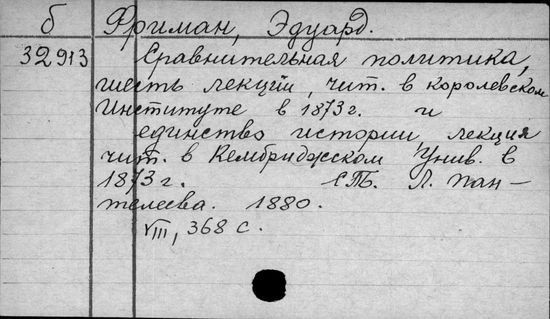 б Фриман, Эдуард.
32913 Сравнительная политика,
шесть лекций, чит. в королевском
Институте в 1873 г. и
единство истории, лекция
чит. в Кембриджском Унив. в
1873 г. СПБ. Л. Пан-
телеева. 1880.
VIII, 368 с.